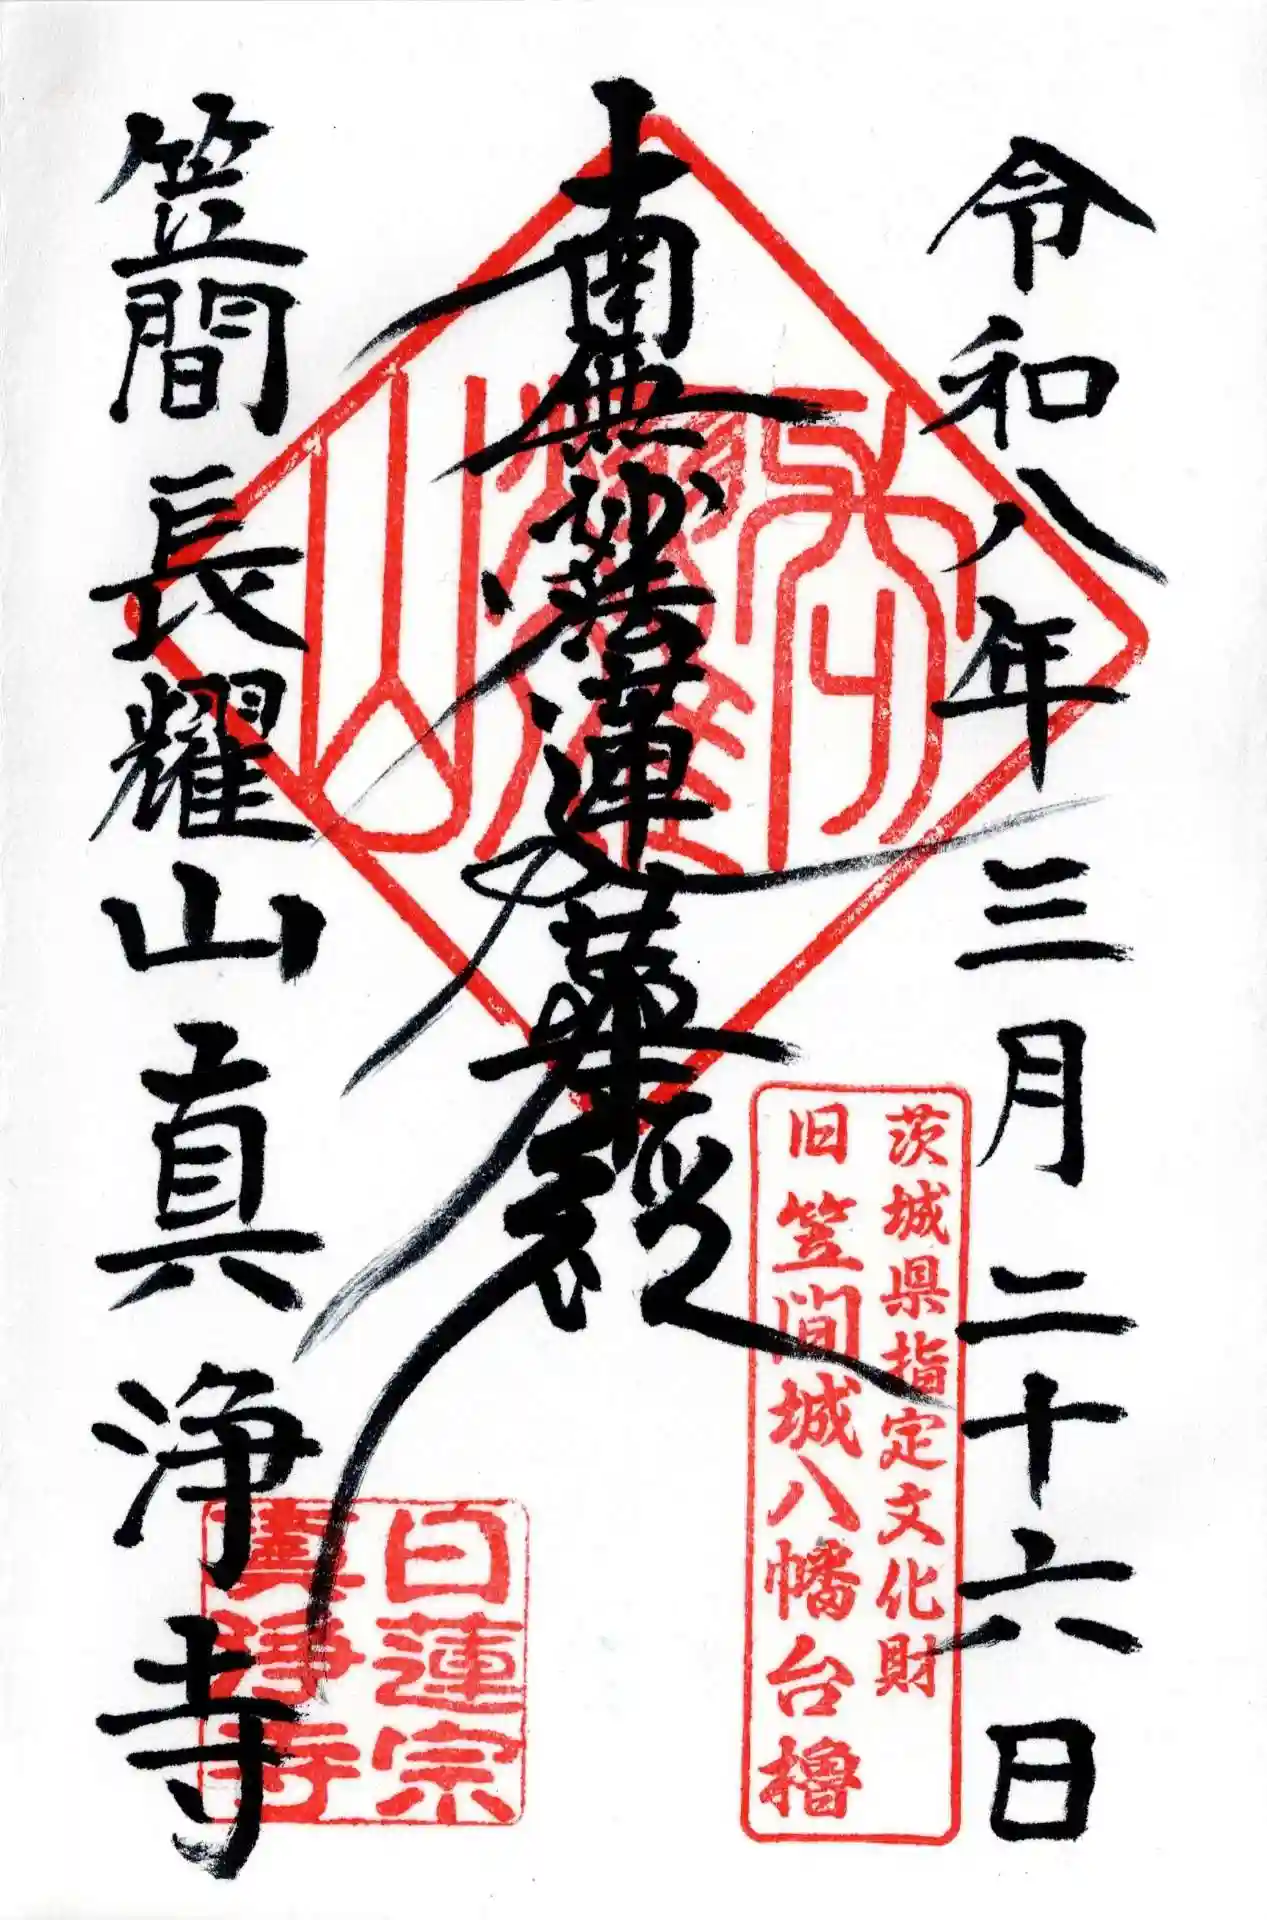 令和八年三月二十六日
茨城県指定文化財
旧笠間城八幡台櫓
南無妙法蓮華経
長耀山
笠間 長耀山 真浄寺
日蓮宗
真浄寺